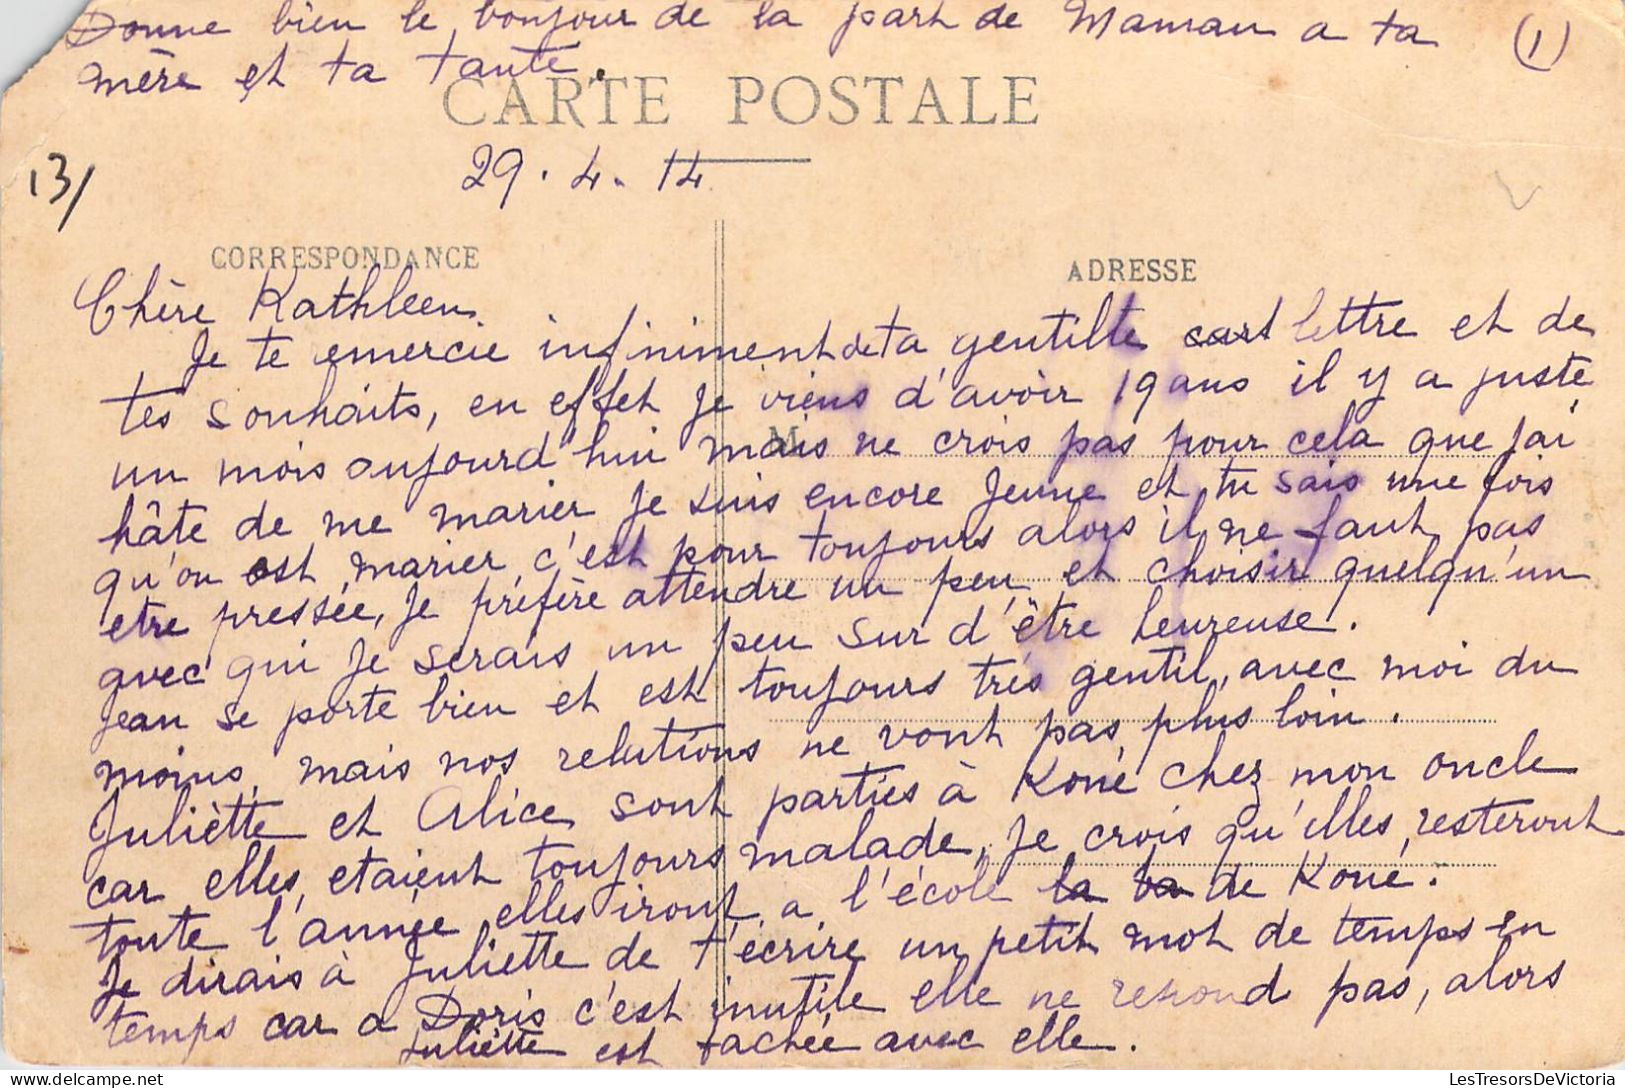 Donne bien le bonjour de la part de Maman a ta
mère et ta tante.
(1)
CARTE POSTALE
13/
29.4.14
CORRESPONDANCE
ADRESSE
Chère Kathleen.
Je te emercie infiniment de ta gentille cart lettre et de
tes souhaits, en effet Je viens d'avoir 19 ans il y a juste
un mois aujourd'hui mais ne crois pas pour cela que j'ai
M
hâte de me marier Je suis encore Jeune et tu sais une fois
qu'on est marier c'est pour toujours alors il ne faut pas
etre pressée, Je préfère attendre un peu et choisir quelqu'un
avec qui Je serais un peu sur d'être heureuse.
Jean se porte bien et est toujours très gentil, avec moi du
moins, mais nos relations ne vont pas plus loin.
Juliette et Alice sont parties à Koné chez mon oncle
car elles etaient toujours malade, Je crois qu'elles resteront
toute l'année elles iront a l'école la ba de Koné.
Je dirais à Juliette de t'écrire un petit mot de temps en
temps car a Doris c'est inutile elle ne repond pas, alors
Juliette est fachée avec elle.
LesTresorsDeVictoria